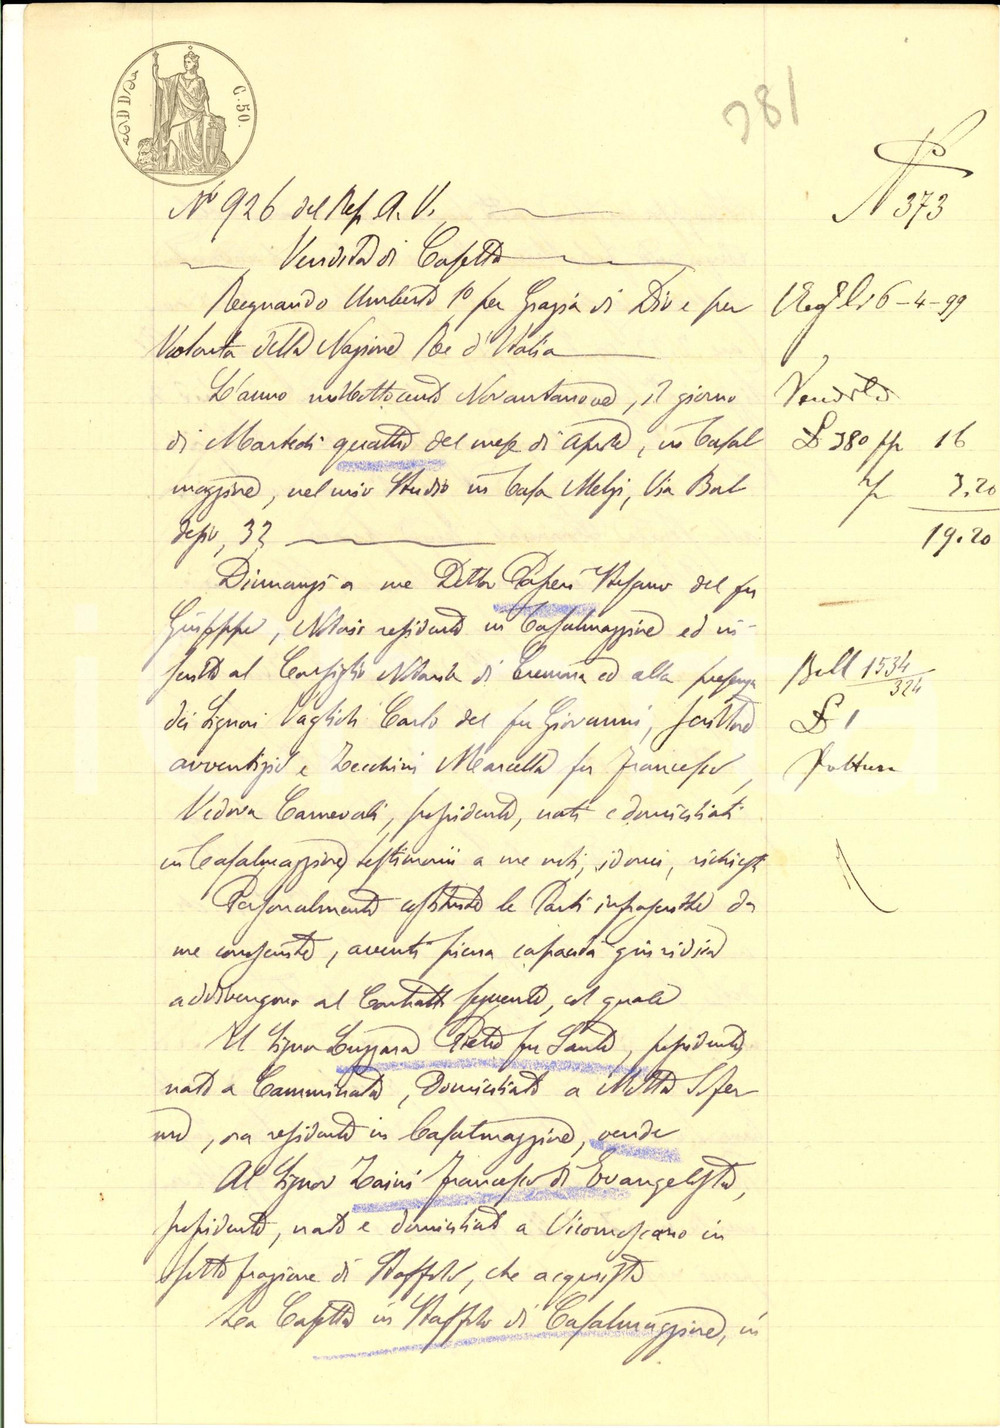 C. 50.
281
N 373
No 926 del Rep. A. V.
Vendita di Casetta
Regnando Umberto 1o per Grazia di Dio e per
Volontà della Nazione Re d'Italia
6-4-99
L'anno milleottocento Novantanove, il giorno
di Martedì quattro del mese di Aprile, in Casal
maggiore, nel mio Studio in Casa Melzi, Via Bal
desio, 32
Vendita
£ 380 16
3.20
19.20
Dinnanzi a me Dottor Stefano del fu
Giuseppe, Notaio residente in Casalmaggiore ed in-
scritto al Consiglio Notarile di Cremona ed alla presenza
dei Signori Vaglioli Carlo del fu Giovanni, scrittore
avventizio e Zecchini Marcella fu Francesco,
Vedova Carnevali, possidente, nati e domiciliati
in Casalmaggiore, testimoni a me noti, idonei, richiesti
Boll 1534
324
£ 1
Personalmente costituite le Parti infrascritte da
me conosciute, aventi piena capacità giuridica
addivengono al Contratto seguente, col quale
Il Signor Luzzara Pietro fu Sante, possidente,
nato a Camminata, domiciliato a Motta S. Fer
mo, ora residente in Casalmaggiore, vende
Al Signor Zaini Francesco di Evangelista,
possidente, nato e domiciliato a Vicomoscano in
detta frazione di Staffolo, che acquista
La Casetta in Staffolo di Casalmaggiore, in